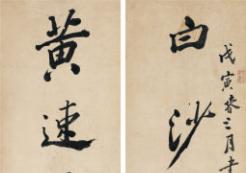 黄速
白沙
戊寅春三月